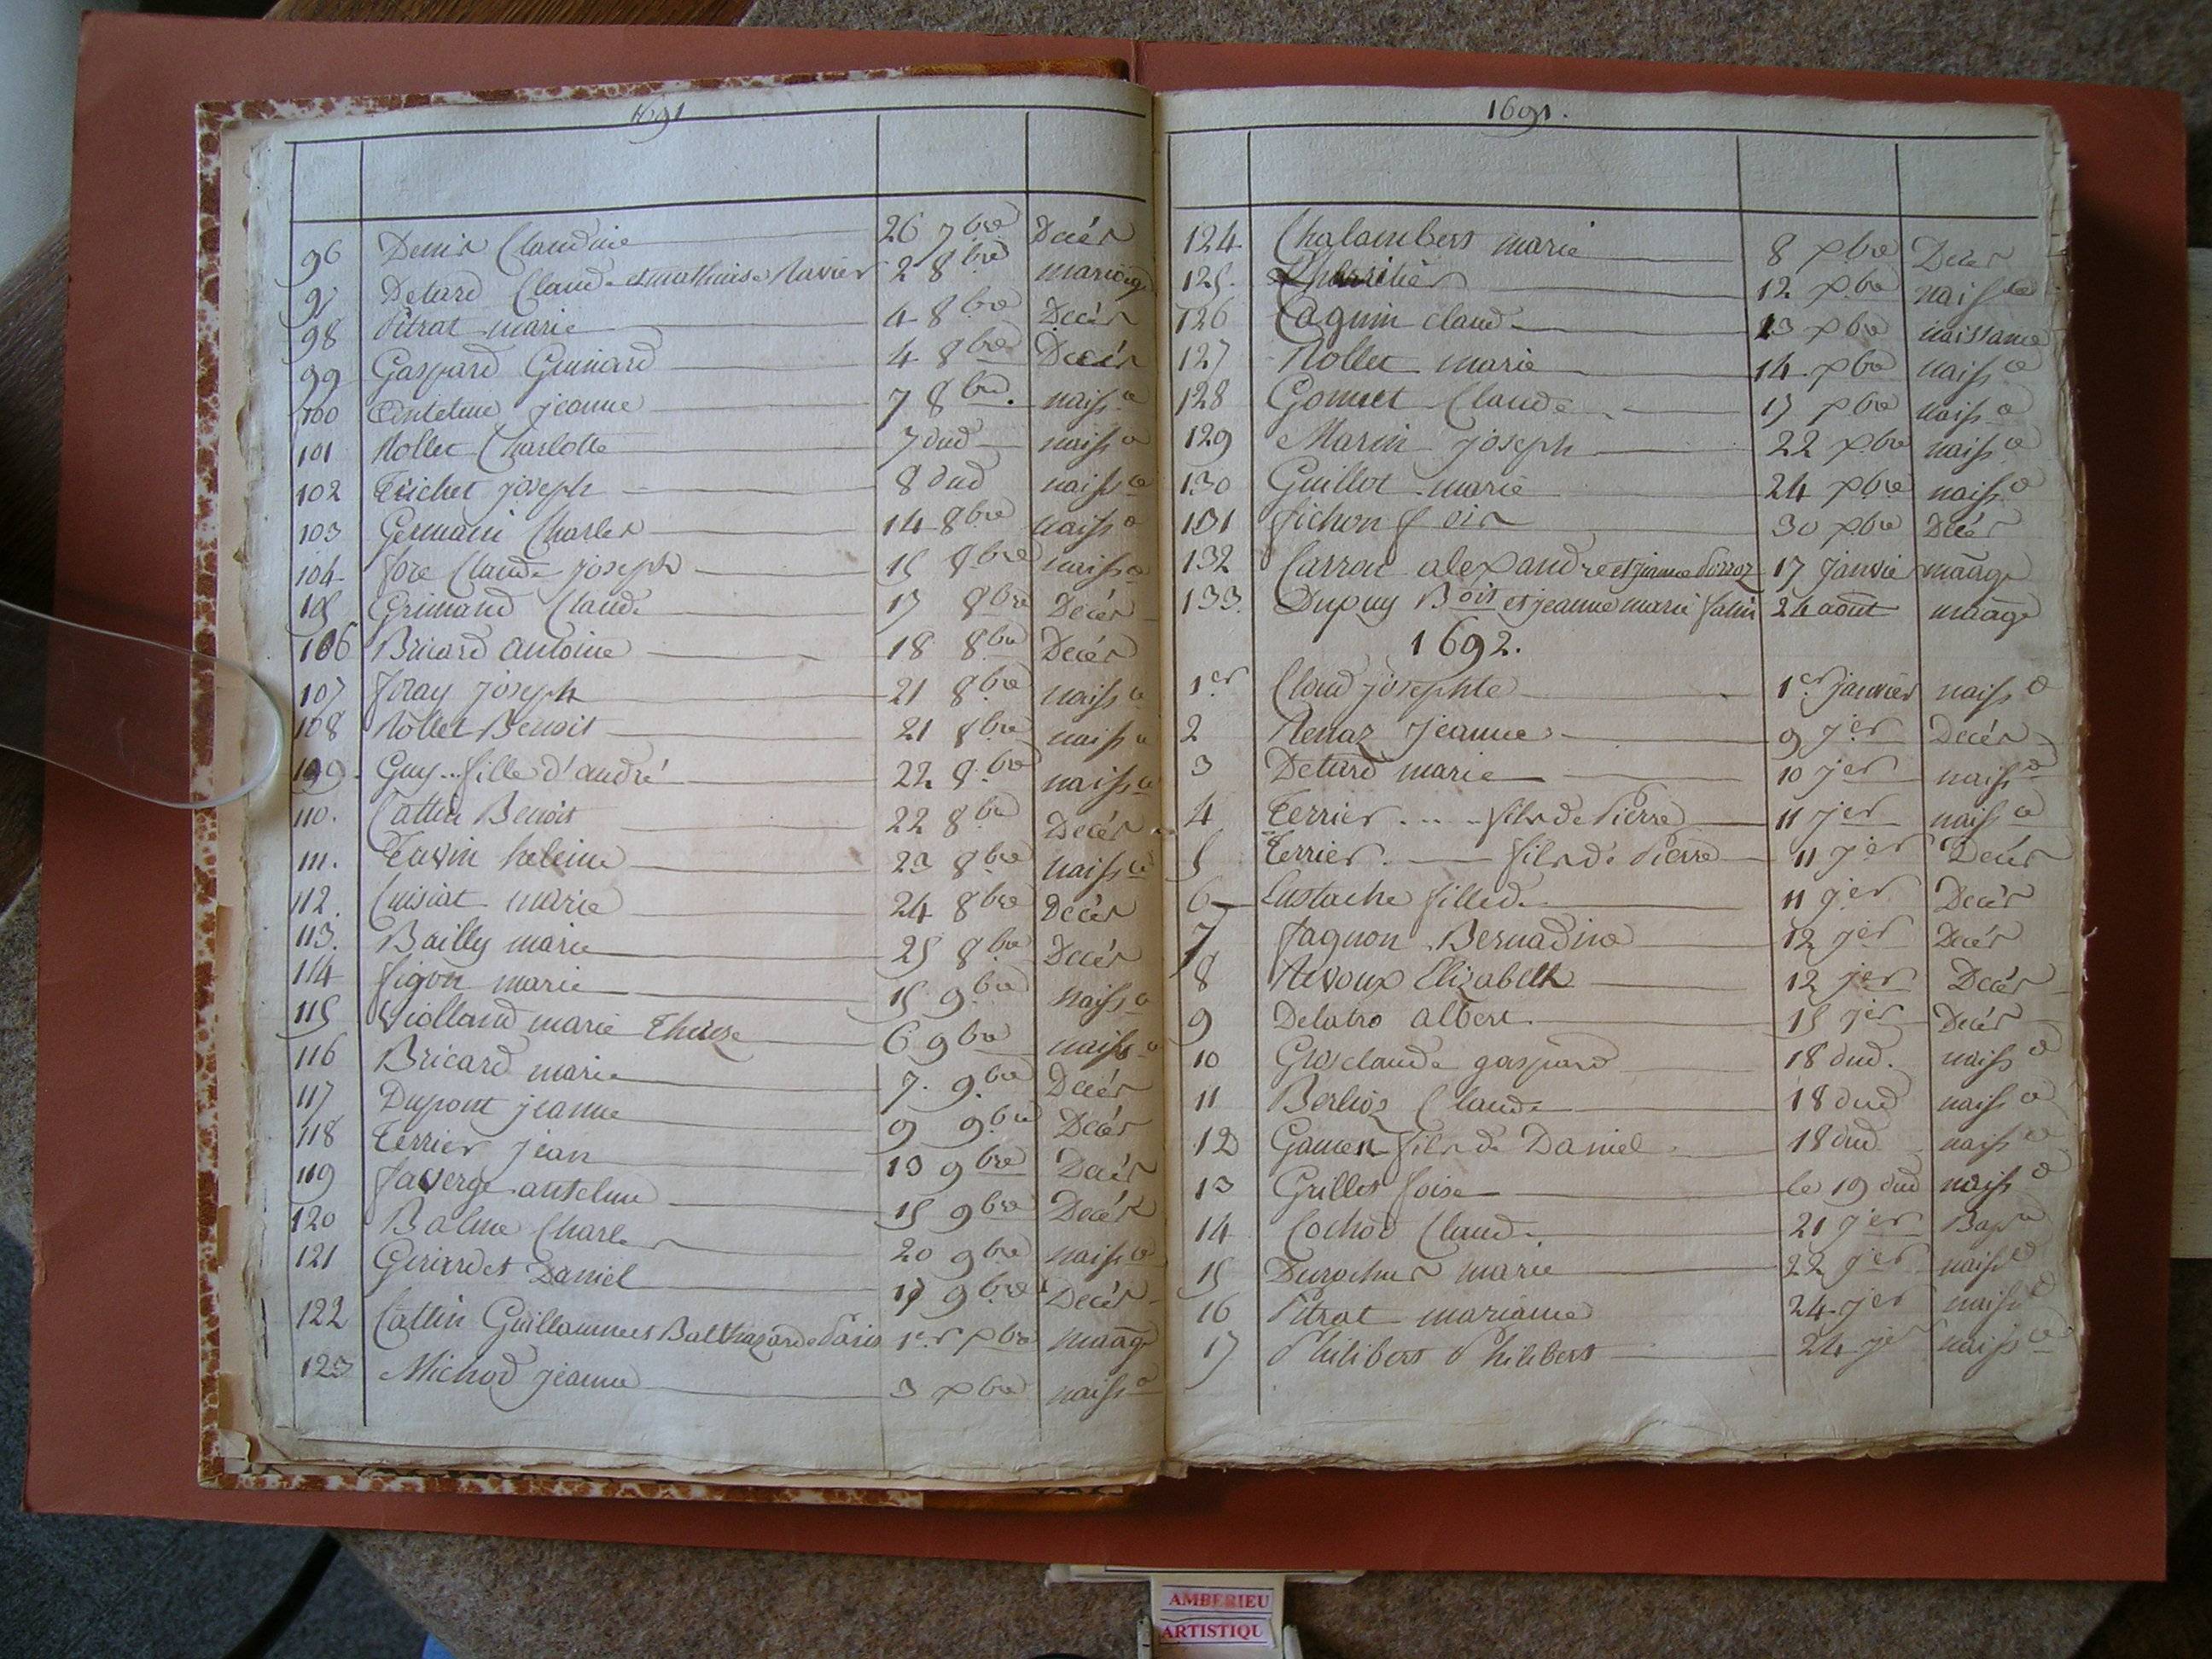 1691
96 Denis Claudine 26 7bre Décès
97 Detard Claude et mathieu Ravier 2 8bre mariage
98 Pitrat marie 4 8bre Decès
99 Gaspard Guinard 4 8bre Decès
100 Antelme jeanne 7 8bre. naiss.e
101 Nollet Charlotte 7 dud naiss.e
102 Trichet joseph 8 dud naiss.e
103 Germain Charles 14 8bre naiss.e
104 fore Claude joseph 15 8bre naiss.e
105 Grimand Claude 17 8bre Decès
106 Bricard antoine 18 8bre Decès
107 foray joseph 21 8bre naiss.e
108 Nollet Benoit 21 8bre naiss.e
109. Guy... fille d'andré 22 8.bre naiss.e
110. Cattin Benoit 22 8bre Decès
111. Tavin heleine 23 8bre naiss.e
112. Cuisiat marie 24 8bre Decès
113. Bailly marie 25 8bre Decès
114 figon marie 15 9bre naiss.e
115 Violland marie Therese 6 9bre naiss.e
116 Bricard marie 7. 9.bre Decès
117 Dupont jeanne 9 9.bre Decès
118 Terrier jean 13 9bre Decès
119 faverge antelme 15 9bre Decès
120 Balme Charles 20 9bre naiss.e
121 Girardet Daniel 17 9bre Decès
122 Cattin Guillaume et Balthazarde Paris 1er xbre maâge
123 Michod jeanne 3 xbre naiss.e
1691.
124. Chalambert marie 8 xbre Decès
125. 12 xbre naissce
126 Caguin claude 13 xbre naissance
127 Nollet marie 14 xbre naiss.e
128 Gonnet Claude 17 xbre naiss.e
129 Marin joseph 22 xbre naiss.e
130 Guillot marie 24 xbre naiss.e
131 fichon fois 30 xbre Décès
132 Carron alexandre et jeanne 17 janvier maâge
133. Dupuy Boit et jeanne marie 24 aout maâge
1692.
1er Claud josephte 1er janvier naiss.e
2 Renaz jeanne 9 jer Decès
3 Detard marie 10 jer naiss.e
4 Terrier .... fils de Pierre 11 jer naiss.e
5 Terrier. fils de Pierre 11 jer Decès
6 Eustache fille de 11 jer Decès
7 fagnon Bernadine 12 jer Decès
8 Revoux Elizabeth 12 jer Decès
9 Delatro albert. 15 jer Decès
10 Grosclaude gaspard 18 dud. naiss.e
11 Berlioz Claude 18 dud naiss.e
12 Gamen fils de Daniel 18 dud naiss.e
13 Grillet foise le 19 dud naiss.e
14 Cochod Claude 21 jer Bap.e
15 Durocher marie 22 jer naiss.e
16 Pitrat marianne 24 jer naiss.e
17 Philibert Philibert 24 jer naiss.e
AMBERIEU
ARTISTIQU